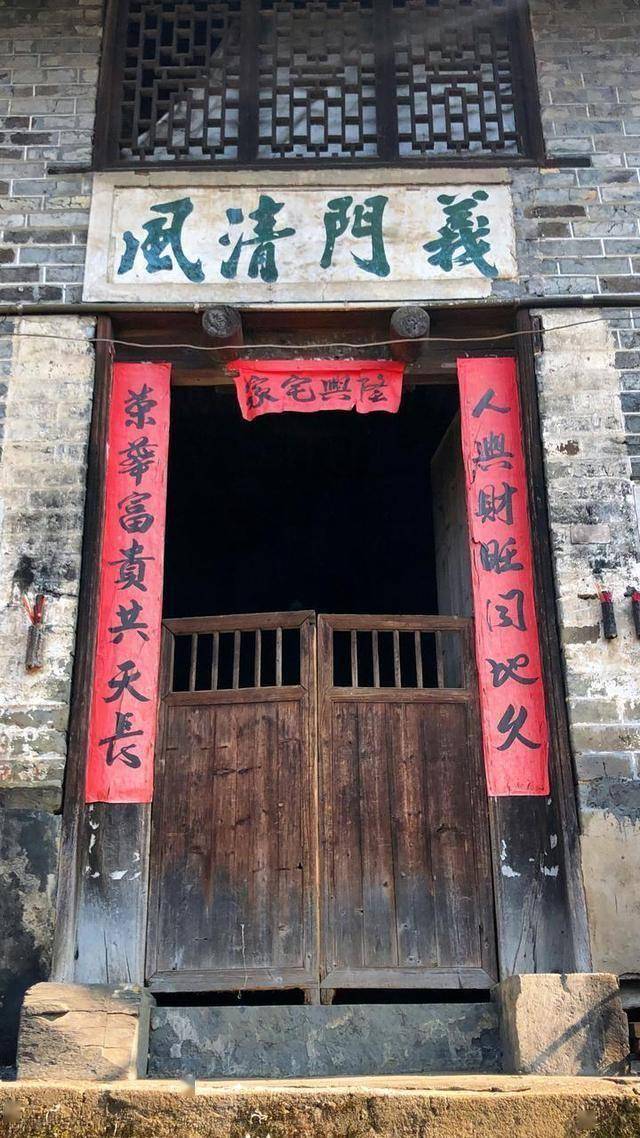 義門清風
家宅興隆
人興財旺同地久
荣華富貴共天長